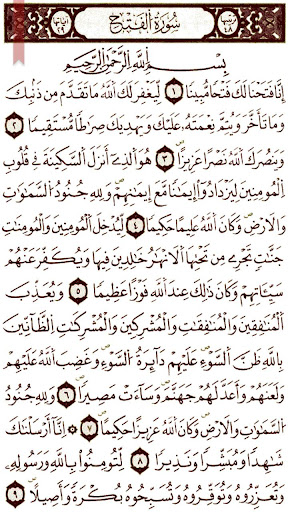 ترتيبها ٤٨ سُورَةُ الْفَتْحِ آياتها ٢٩
بِسْمِ اللَّهِ الرَّحْمَٰنِ الرَّحِيمِ
إِنَّا فَتَحْنَا لَكَ فَتْحًا مُبِينًا ١ لِيَغْفِرَ لَكَ اللَّهُ مَا تَقَدَّمَ مِنْ ذَنْبِكَ
وَمَا تَأَخَّرَ وَيُتِمَّ نِعْمَتَهُ عَلَيْكَ وَيَهْدِيَكَ صِرَاطًا مُسْتَقِيمًا ٢
وَيَنْصُرَكَ اللَّهُ نَصْرًا عَزِيزًا ٣ هُوَ الَّذِي أَنْزَلَ السَّكِينَةَ فِي قُلُوبِ
الْمُؤْمِنِينَ لِيَزْدَادُوا إِيمَانًا مَعَ إِيمَانِهِمْ وَلِلَّهِ جُنُودُ السَّمَوَاتِ
وَالْأَرْضِ وَكَانَ اللَّهُ عَلِيمًا حَكِيمًا ٤ لِيُدْخِلَ الْمُؤْمِنِينَ وَالْمُؤْمِنَاتِ
جَنَّاتٍ تَجْرِي مِنْ تَحْتِهَا الْأَنْهَارُ خَالِدِينَ فِيهَا وَيُكَفِّرَ عَنْهُمْ
سَيِّئَاتِهِمْ وَكَانَ ذَلِكَ عِنْدَ اللَّهِ فَوْزًا عَظِيمًا ٥ وَيُعَذِّبَ
الْمُنَافِقِينَ وَالْمُنَافِقَاتِ وَالْمُشْرِكِينَ وَالْمُشْرِكَاتِ الظَّانِّينَ
بِاللَّهِ ظَنَّ السَّوْءِ عَلَيْهِمْ دَائِرَةُ السَّوْءِ وَغَضِبَ اللَّهُ عَلَيْهِمْ
وَلَعَنَهُمْ وَأَعَدَّ لَهُمْ جَهَنَّمَ وَسَاءَتْ مَصِيرًا ٦ وَلِلَّهِ جُنُودُ
السَّمَوَاتِ وَالْأَرْضِ وَكَانَ اللَّهُ عَزِيزًا حَكِيمًا ٧ إِنَّا أَرْسَلْنَاكَ
شَاهِدًا وَمُبَشِّرًا وَنَذِيرًا ٨ لِتُؤْمِنُوا بِاللَّهِ وَرَسُولِهِ
وَتُعَزِّرُوهُ وَتُوَقِّرُوهُ وَتُسَبِّحُوهُ بُكْرَةً وَأَصِيلًا ٩